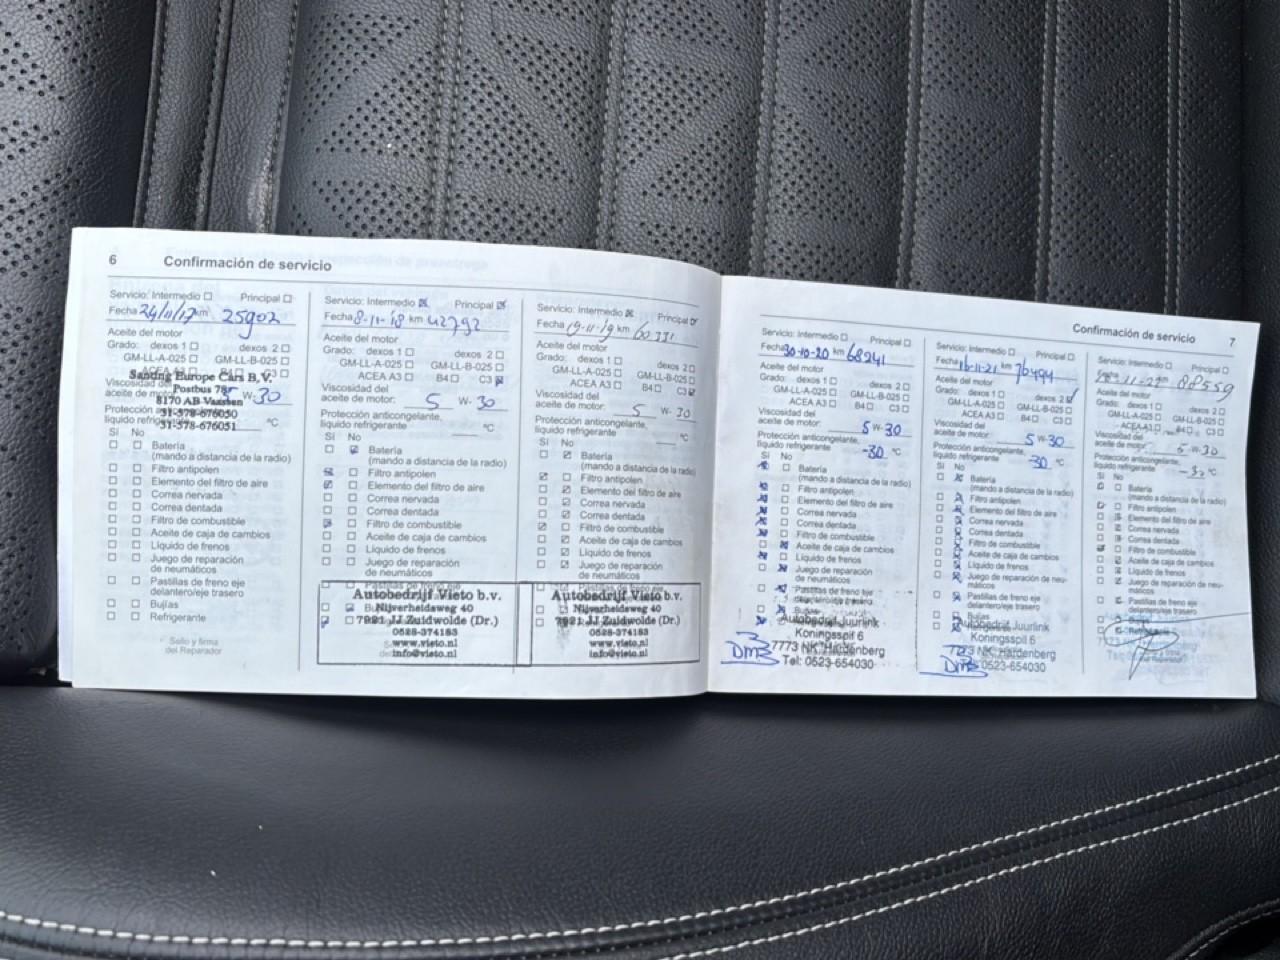 6 Confirmación de servicio
Servicio: Intermedio Principal
Fecha 24/11/17 km 25902
Aceite del motor
Grado: dexos 1 dexos 2
GM-LL-A-025 GM-LL-B-025
ACEA A3 C3
Sanding Europe Cars B.V.
Postbus 78
8170 AB Vaassen
31-578-676050
31-578-676051
Viscosidad del
aceite de motor: 5 W- 30
Protección anticongelante,
líquido refrigerante °C
Sí No
Batería
(mando a distancia de la radio)
Filtro antipolen
Elemento del filtro de aire
Correa nervada
Correa dentada
Filtro de combustible
Aceite de caja de cambios
Líquido de frenos
Juego de reparación
de neumáticos
Pastillas de freno eje
delantero/eje trasero
Bujías
Refrigerante
Sello y firma
del Reparador
Servicio: Intermedio Principal
Fecha 8-11-18 km 42792
Aceite del motor
Grado: dexos 1 dexos 2
GM-LL-A-025 GM-LL-B-025
ACEA A3 B4 C3
Viscosidad del
aceite de motor: 5 W- 30
Protección anticongelante,
líquido refrigerante °C
Sí No
Batería
(mando a distancia de la radio)
Filtro antipolen
Elemento del filtro de aire
Correa nervada
Correa dentada
Filtro de combustible
Aceite de caja de cambios
Líquido de frenos
Juego de reparación
de neumáticos
Pastillas de freno eje
Autobedrijf Vieto b.v.
Nijverheidsweg 40
7921 JJ Zuidwolde (Dr.)
0528-374183
www.vieto.nl
info@vieto.nl
Servicio: Intermedio Principal
Fecha 19-11-19 km 60331
Aceite del motor
Grado: dexos 1 dexos 2
GM-LL-A-025 GM-LL-B-025
ACEA A3 B4 C3
Viscosidad del
aceite de motor: 5 W- 30
Protección anticongelante,
líquido refrigerante °C
Sí No
Batería
(mando a distancia de la radio)
Filtro antipolen
Elemento del filtro de aire
Correa nervada
Correa dentada
Filtro de combustible
Aceite de caja de cambios
Líquido de frenos
Juego de reparación
de neumáticos
Pastillas de freno eje
Autobedrijf Vieto b.v.
Nijverheidsweg 40
7921 JJ Zuidwolde (Dr.)
0528-374183
www.vieto.nl
info@vieto.nl
Confirmación de servicio 7
Servicio: Intermedio Principal
Fecha 30-10-20 km 68241
Aceite del motor
Grado: dexos 1 dexos 2
GM-LL-A-025 GM-LL-B-025
ACEA A3 B4 C3
Viscosidad del
aceite de motor: 5 W- 30
Protección anticongelante,
líquido refrigerante -30 °C
Sí No
Batería
(mando a distancia de la radio)
Filtro antipolen
Elemento del filtro de aire
Correa nervada
Correa dentada
Filtro de combustible
Aceite de caja de cambios
Líquido de frenos
Juego de reparación
de neumáticos
Pastillas de freno eje
delantero/eje trasero
Bujías
Autobedrijf Juurlink
Koningsspil 6
7773 NK Hardenberg
Tel: 0523-654030
DMB
Servicio: Intermedio Principal
Fecha 16-11-21 km 76494
Aceite del motor
Grado: dexos 1 dexos 2
GM-LL-A-025 GM-LL-B-025
ACEA A3 B4 C3
Viscosidad del
aceite de motor: 5 W- 30
Protección anticongelante,
líquido refrigerante -30 °C
Sí No
Batería
(mando a distancia de la radio)
Filtro antipolen
Elemento del filtro de aire
Correa nervada
Correa dentada
Filtro de combustible
Aceite de caja de cambios
Líquido de frenos
Juego de reparación de neu-
máticos
Pastillas de freno eje
delantero/eje trasero
Bujías
Autobedrijf Juurlink
Koningsspil 6
7773 NK Hardenberg
0523-654030
DMB
Servicio: Intermedio Principal
Fecha km 88559
Aceite del motor
Grado: dexos 1 dexos 2
GM-LL-A-025 GM-LL-B-025
ACEA A3 B4 C3
Viscosidad del
aceite de motor: 5 W- 30
Protección anticongelante,
líquido refrigerante °C
Sí No
Batería
(mando a distancia de la radio)
Filtro antipolen
Elemento del filtro de aire
Correa nervada
Correa dentada
Filtro de combustible
Aceite de caja de cambios
Líquido de frenos
Juego de reparación de neu-
máticos
Pastillas de freno eje
delantero/eje trasero
Bujías
Refrigerante